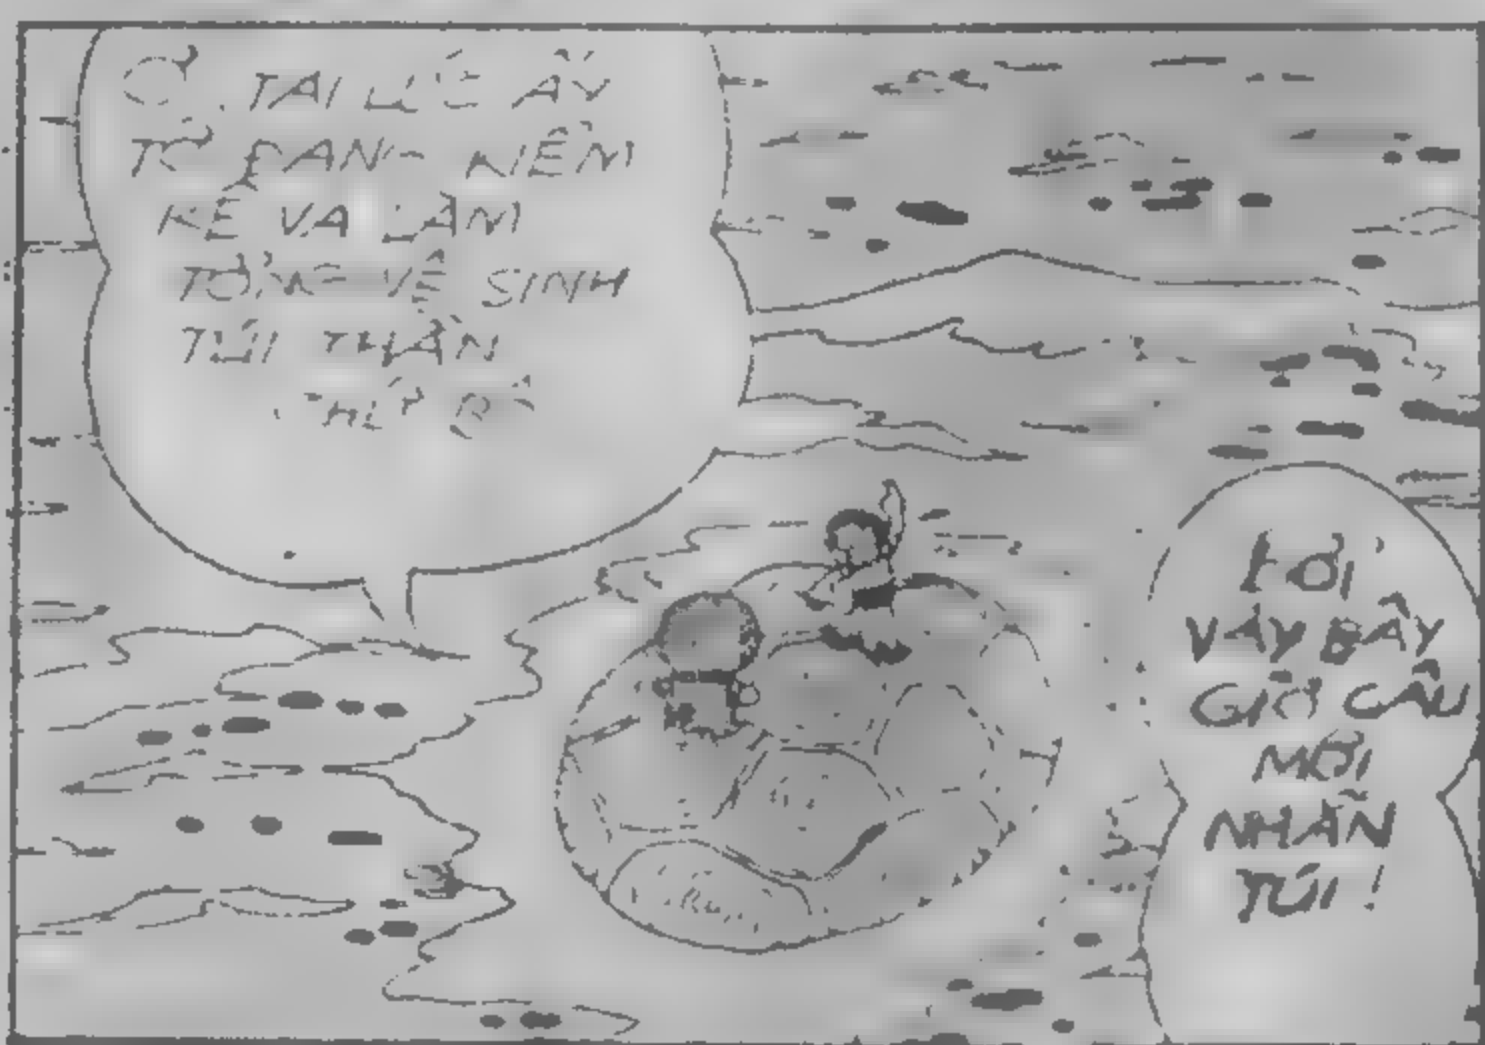 Ờ. TẠI LÚC ẤY
TỚ ĐANG KIỂM
KÊ VÀ LÀM
TỔNG VỆ SINH
TÚI THẦN
TRỜI
VẬY BÂY
GIỜ CẬU
MỚI
NHẴN
TÚI!